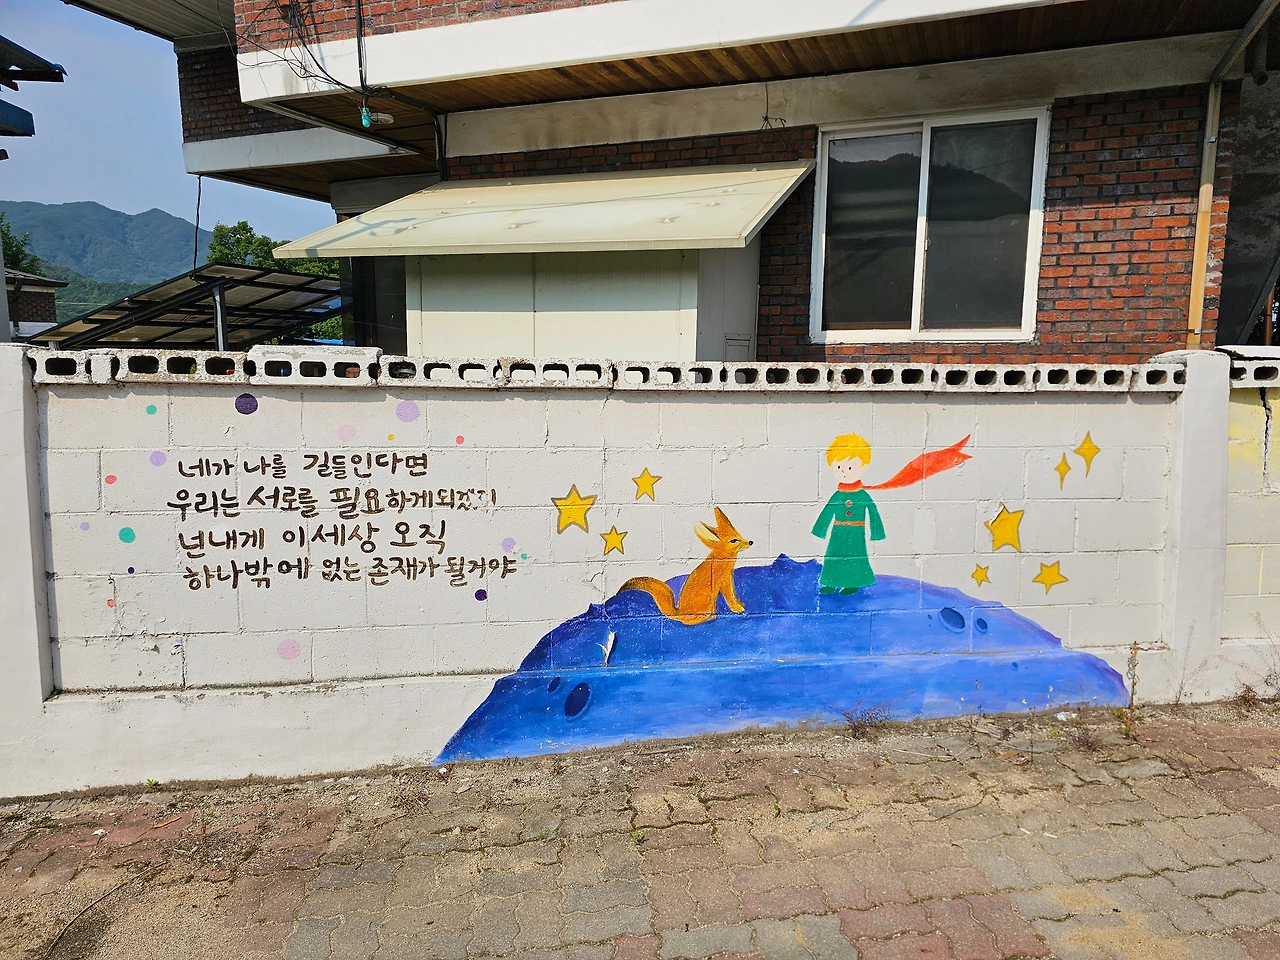 네가 나를 길들인다면
우리는 서로를 필요하게되겠지
넌내게 이 세상 오직
하나밖에 없는 존재가 될거야